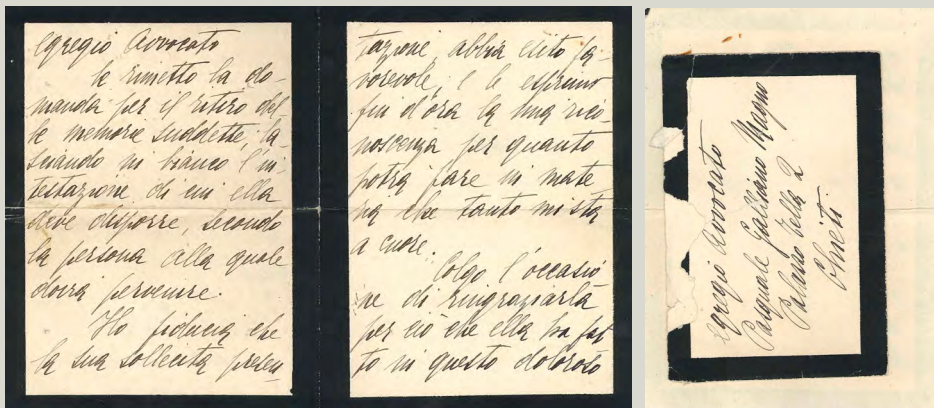 Egregio Avvocato
Le rimetto la do-
manda per il ritiro del-
le memorie suddette, la-
sciando in bianco l'in-
testazione di cui ella
deve disporre, secondo
la persona alla quale
dovrà pervenire.
Ho fiducia che
la sua sollecita presen-
tazione, abbia esito fa-
vorevole, e le esprimo
fin d'ora la mia rico-
noscenza per quanto
potrà fare in mate
ria che tanto mi sta
a cuore.
Colgo l'occasio
ne di ringraziarla
per ciò che ella ha fat
to in questo doloroso
Egregio Avvocato
Pasquale Galliano Magno
Palazzo Zella 2
Chieti